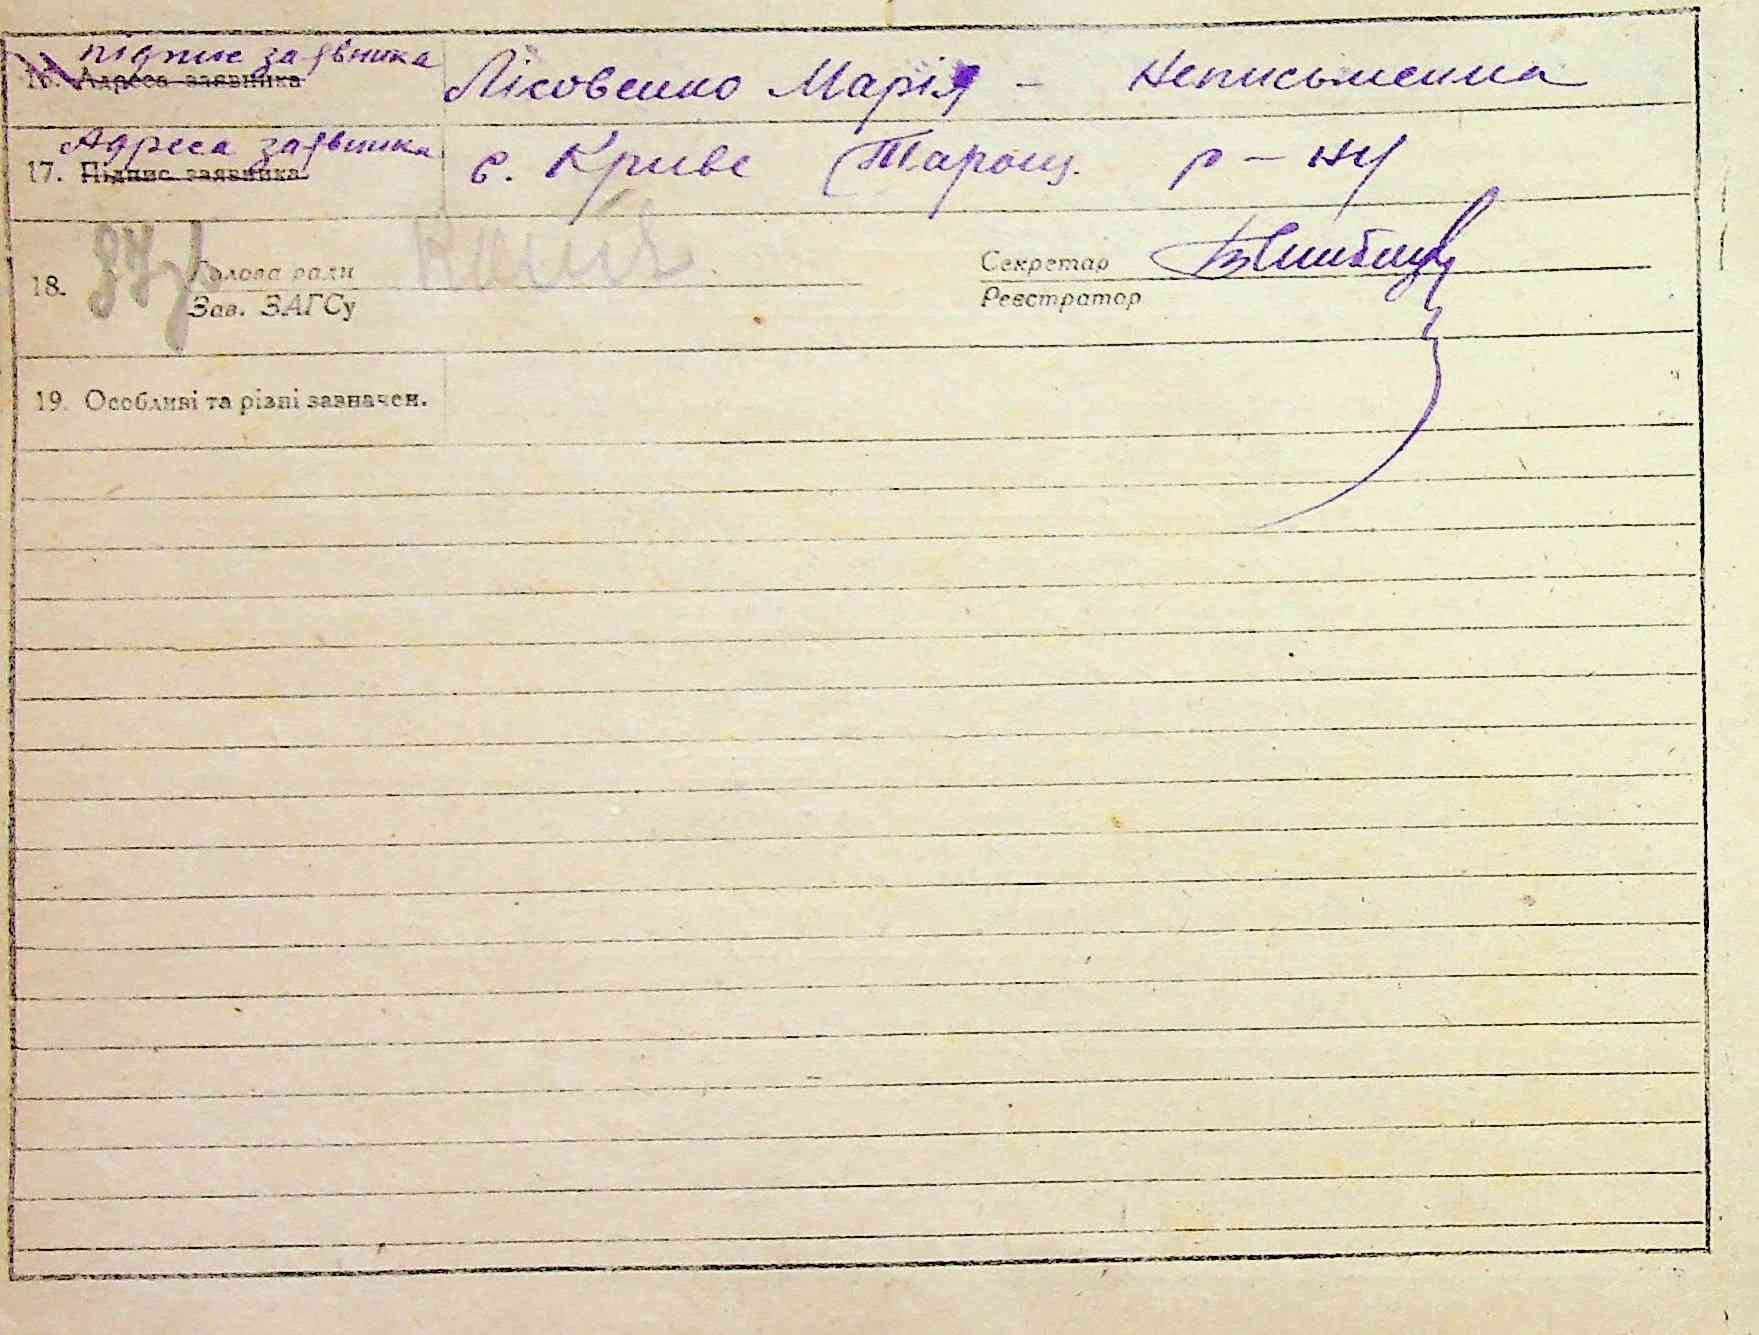 підпис заявника
16. Адреса заявника Лісовенко Марія – Неписьменна
Адреса заявника
17. Підпис заявника с. Криве Таращ. р – ну
18. Голова ради Секретар
Зав. ЗАГСу Реєстратор
19. Особливі та різні зазначен.